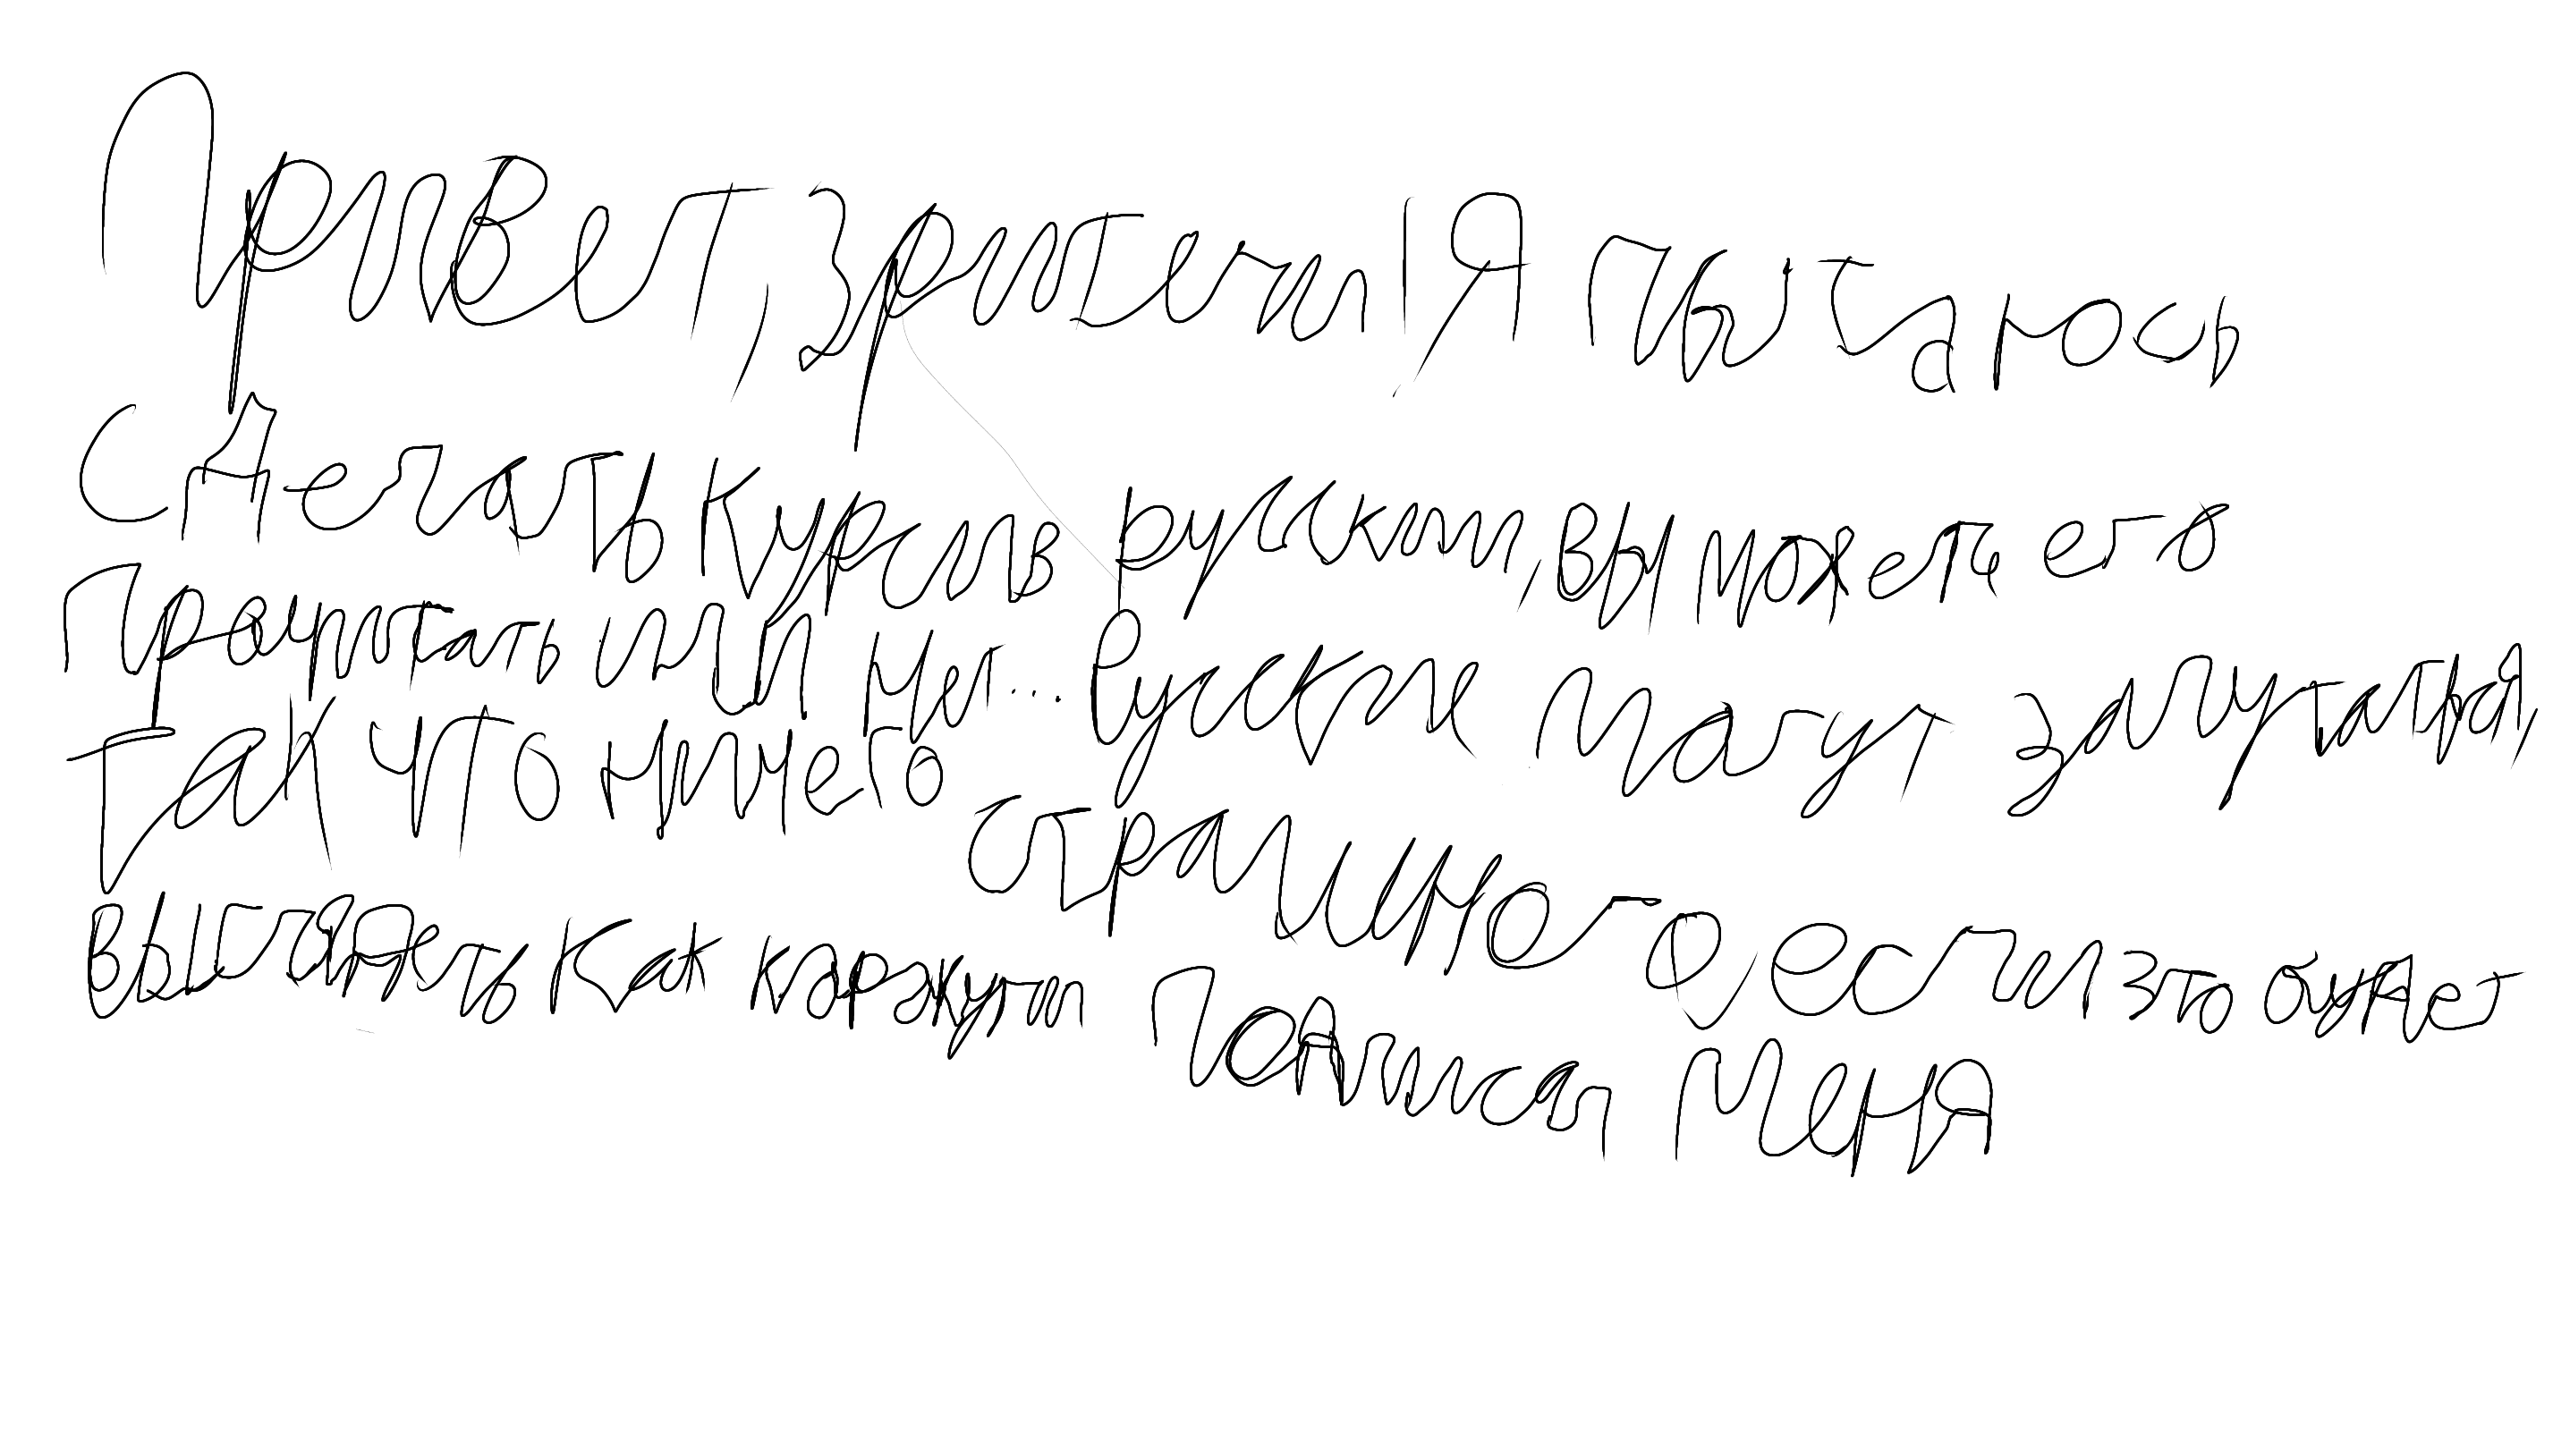 Привет, зрители! Я пытаюсь
сделать курсив русский, вы можете его
прочитать или нет... Русские могут запутаться,
так что ничего страшного, если это будет
выглядеть как каракули подписал меня